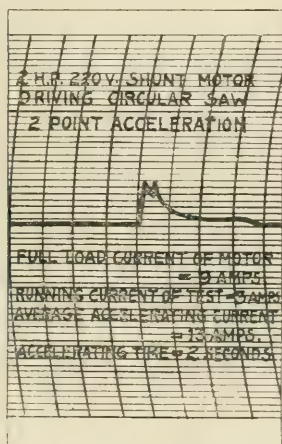 2 H.P. 220V. SHUNT MOTOR
DRIVING CIRCULAR SAW
2 POINT ACCELERATION
FULL LOAD CURRENT OF MOTOR
= 9 AMPS
RUNNING CURRENT OF TEST = 3 AMPS
AVERAGE ACCELERATING CURRENT
= 13 AMPS.
ACCELERATING TIME = 2 SECONDS